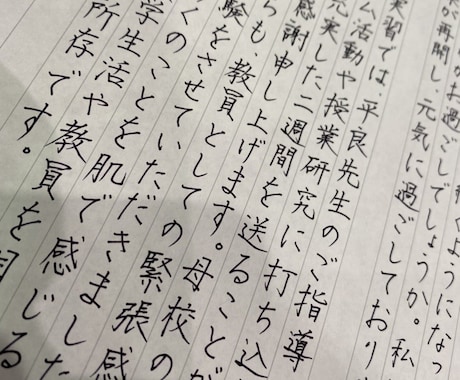 くようになっ
お過ごしでしょうか。私
が再開し、元気に過ごしており
実習では、平良先生のご指導
ム活動や授業研究に打ち込
充実した二週間を送ることが
感謝申し上げます。母校の
らも、教員としての緊張感
験をさせていただきました
くのことを肌で感じる
学生活や教員を
所存です。